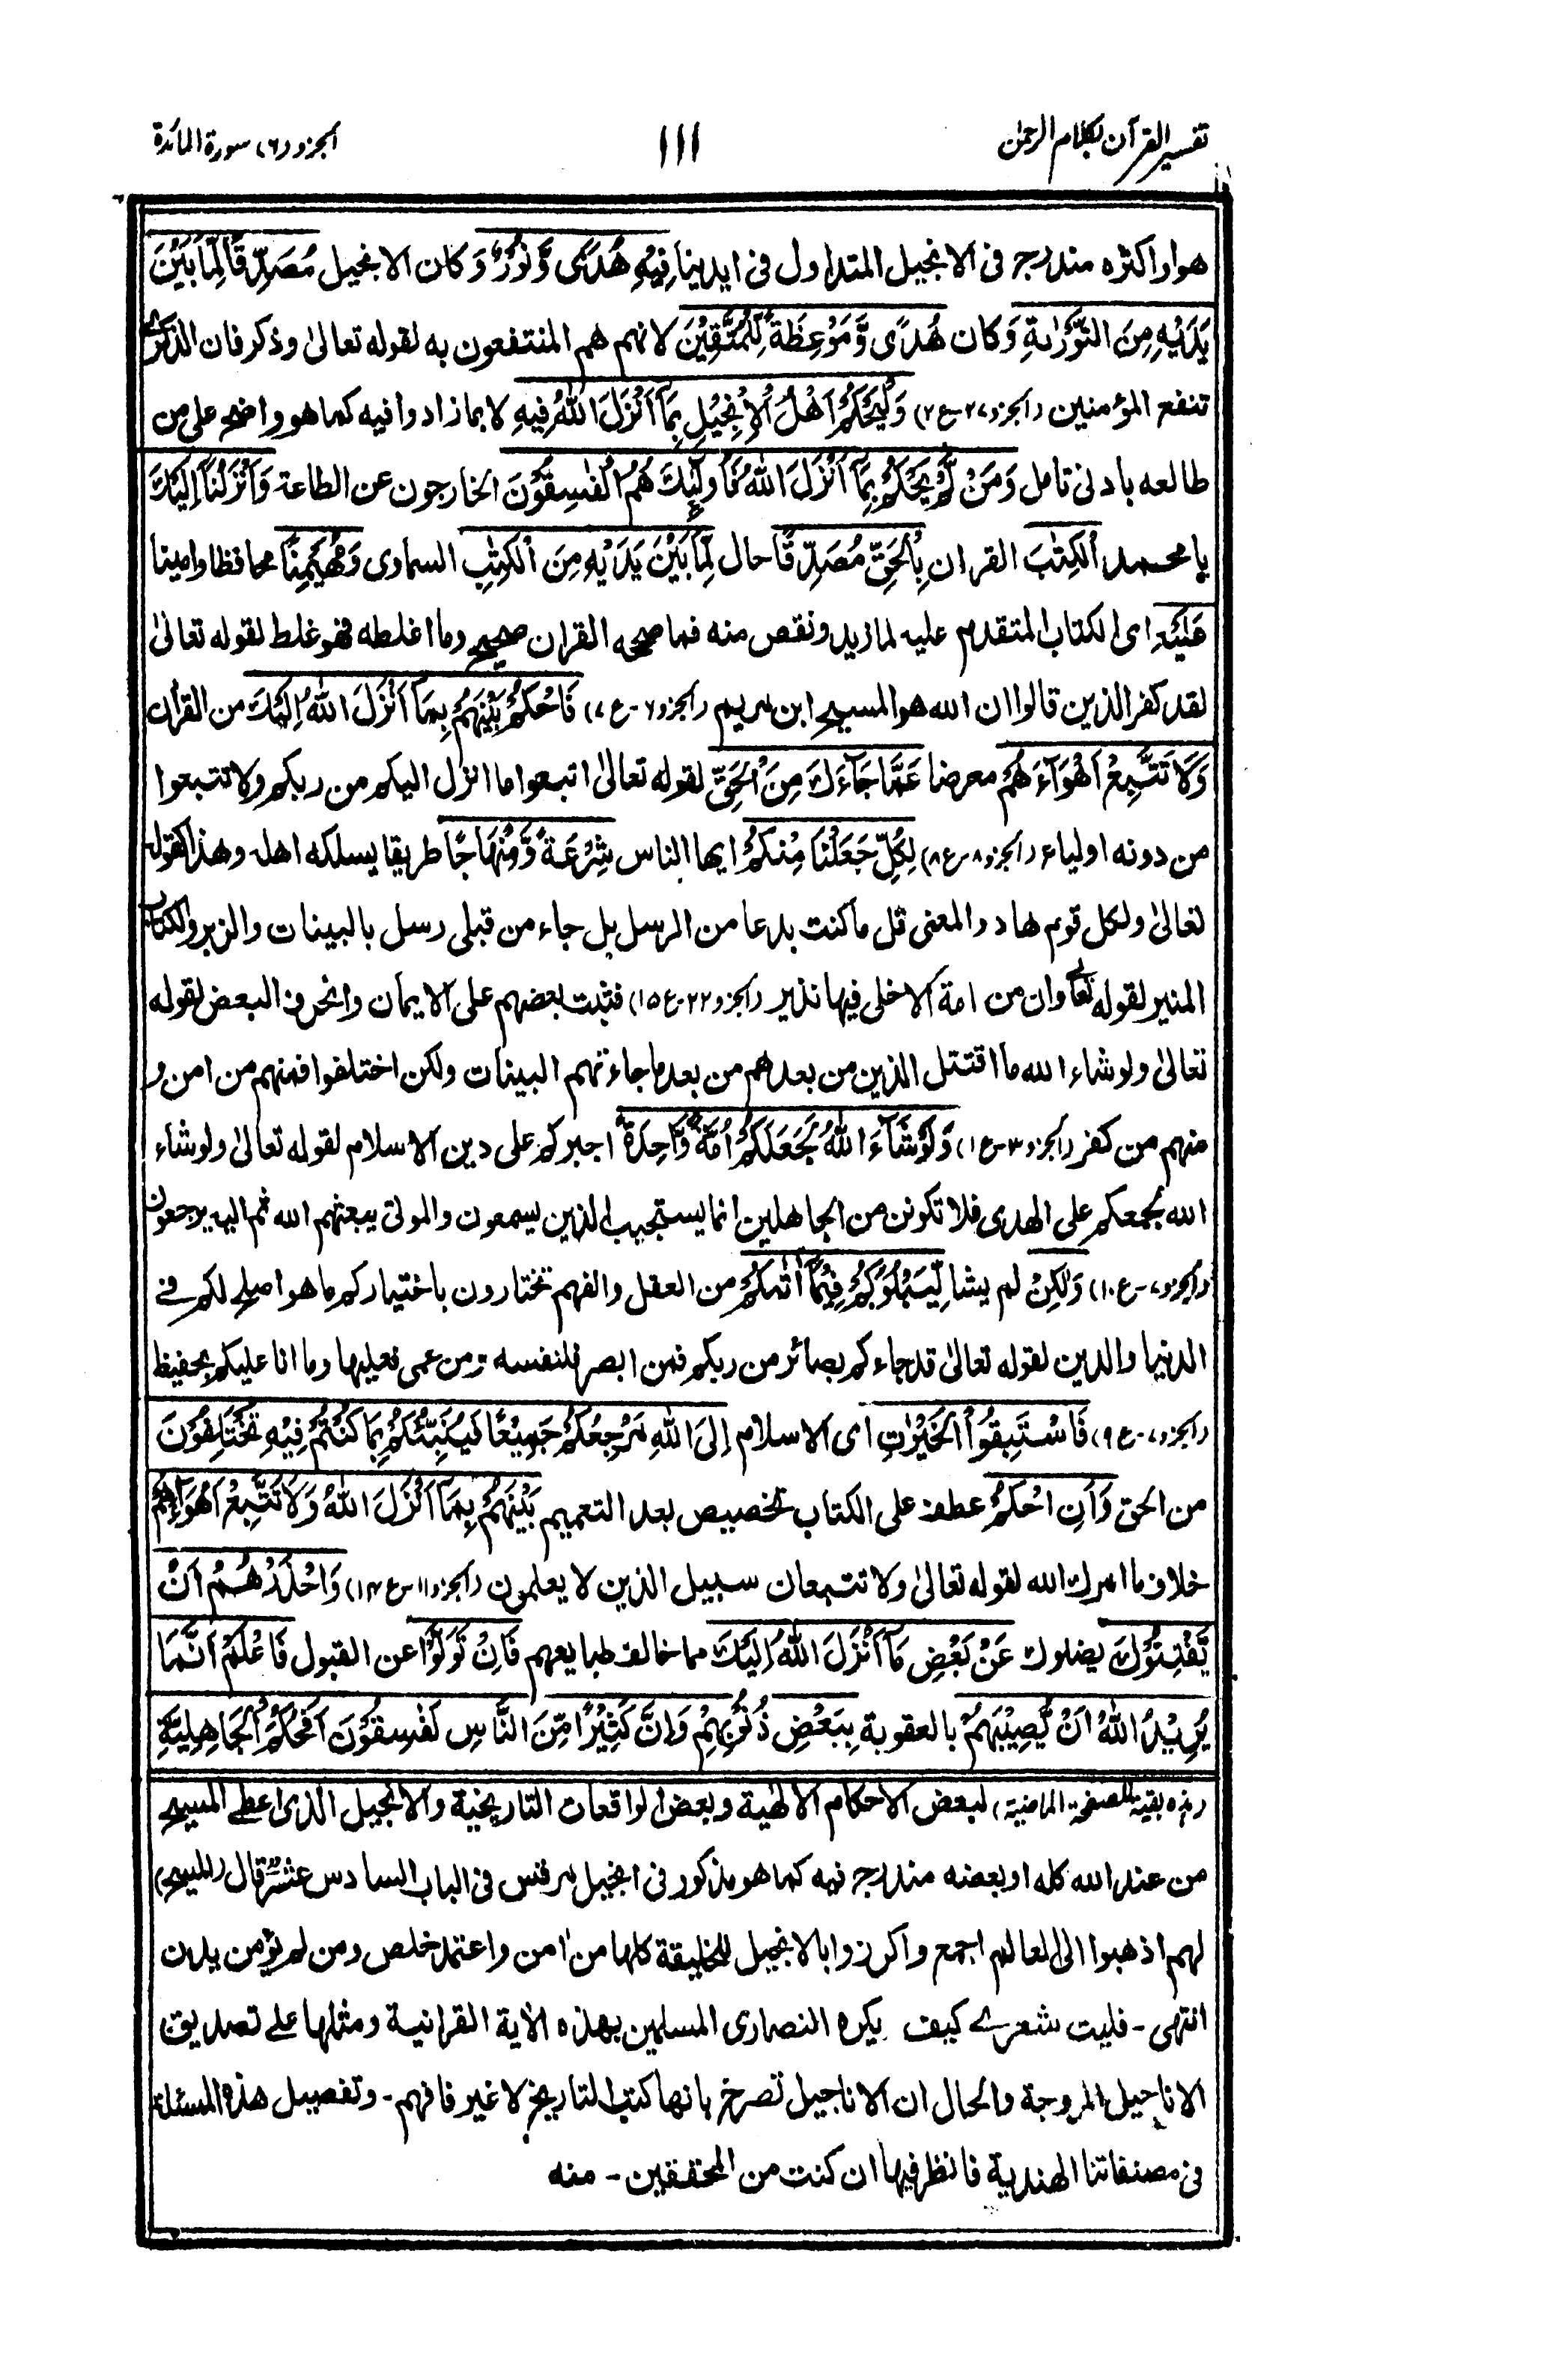 تفسير القرآن بكلام الرحمٰن
١١١
الجزو (٦) سورة المائدة
هو او اكثره مندرجه فى الانجيل المتداول فى ايدينا فِيْهِ هُدًى وَّنُوْرٌ وَكان الانجيل مُصَدِّقًا لِّمَا بَيْنَ
يَدَيْهِ مِنَ التَّوْرٰىةِ وَكان هُدًى وَّمَوْعِظَةً لِّلْمُتَّقِيْنَ لانهم هم المنتفعون به لقوله تعالىٰ وذكر فان الذكرىٰ
تنفع المؤمنين (الجزو ٢٧-ع ٢) وَلْيَحْكُمْ اَهْلُ الْاِنْجِيْلِ بِمَآ اَنْزَلَ اللّٰهُ فِيْهِ لا بما زادوا فيه كما هو واضح على من
طالعه بادنى تامل وَمَنْ لَّمْ يَحْكُمْ بِمَآ اَنْزَلَ اللّٰهُ فَاُولٰٓئِكَ هُمُ الْفٰسِقُوْنَ الخارجون عن الطاعة وَاَنْزَلْنَآ اِلَيْكَ
يا محمد الْكِتٰبَ القران بِالْحَقِّ مُصَدِّقًا حال لِّمَا بَيْنَ يَدَيْهِ مِنَ الْكِتٰبِ السماوى وَمُهَيْمِنًا محافظا وامينا
عَلَيْهِ اى الكتاب المتقدم عليه لما زيد ونقص منه فما صححه القران صحيح وما اغلطه فهو غلط لقوله تعالىٰ
لقد كفر الذين قالوا ان الله هو المسيح ابن مريم (الجزو ٦-ع ٧) فَاحْكُمْ بَيْنَهُمْ بِمَآ اَنْزَلَ اللّٰهُ اِلَيْكَ من القرآن
وَلَا تَتَّبِعْ اَهْوَآءَهُمْ معرضا عَمَّا جَآءَكَ مِنَ الْحَقِّ لقوله تعالىٰ اتبعوا ما انزل اليكم من ربكم ولا تتبعوا
من دونه اولياء (الجزو ٨-ع ٨) لِكُلٍّ جَعَلْنَا مِنْكُمْ ايها الناس شِرْعَةً وَّمِنْهَاجًا طريقا يسلكه اهله وهذا كقوله
تعالىٰ ولكل قوم هاد والمعنى قل ما كنت بدعا من الرسل بل جاء من قبلى رسل بالبينات والزبر والكتاب
المنير لقوله تعالىٰ وان من امة الا خلى فيها نذير (الجزو ٢٢-ع ١٥) فثبت بعضهم على الايمان وانحرف البعض لقوله
تعالىٰ ولو شاء الله ما اقتتل الذين من بعدهم من بعد ما جاءتهم البينات ولكن اختلفوا فمنهم من امن و
منهم من كفر (الجزو ٣-ع ١) وَلَوْ شَآءَ اللّٰهُ لَجَعَلَكُمْ اُمَّةً وَّاحِدَةً اجبركم على دين الاسلام لقوله تعالىٰ ولو شاء
الله لجمعكم على الهدى فلا تكونن من الجاهلين انما يستجيب الذين يسمعون والموتى يبعثهم الله ثم اليه يرجعون
(الجزو ٧-ع ١٠) وَلٰكِنْ لم يشا لِّيَبْلُوَكُمْ فِيْمَآ اٰتٰىكُمْ من العقل والفهم تختارون باختياركم ما هو اصلح لكم فى
الدنيا والدين لقوله تعالىٰ قد جاءكم بصائر من ربكم فمن ابصر فلنفسه ومن عمى فعليها وما انا عليكم بحفيظ
(الجزو ٧-ع ٩) فَاسْتَبِقُوا الْخَيْرٰتِ اى الاسلام اِلَى اللّٰهِ مَرْجِعُكُمْ جَمِيْعًا فَيُنَبِّئُكُمْ بِمَا كُنْتُمْ فِيْهِ تَخْتَلِفُوْنَ
من الحق وَاَنِ احْكُمْ عطف على الكتاب تخصيص بعد التعميم بَيْنَهُمْ بِمَآ اَنْزَلَ اللّٰهُ وَلَا تَتَّبِعْ اَهْوَآءَهُمْ
خلاف ما امرك الله لقوله تعالىٰ ولا تتبعان سبيل الذين لا يعلمون (الجزو ١١-ع ١٤) وَاحْذَرْهُمْ اَنْ
يَّفْتِنُوْكَ يضلوك عَنْ بَعْضِ مَآ اَنْزَلَ اللّٰهُ اِلَيْكَ مما خالف طبايعهم فَاِنْ تَوَلَّوْا عن القبول فَاعْلَمْ اَنَّمَا
يُرِيْدُ اللّٰهُ اَنْ يُّصِيْبَهُمْ بالعقوبة بِبَعْضِ ذُنُوْبِهِمْ وَاِنَّ كَثِيْرًا مِّنَ النَّاسِ لَفٰسِقُوْنَ اَفَحُكْمَ الْجَاهِلِيَّةِ
(هذه بقية الصفحة الماضية) لبعض الاحكام الالٰهية وبعض الواقعات التاريخية والانجيل الذى اعطى المسيح
من عند الله كله او بعضه مندرجه فيه كما هو مذكور فى انجيل مرقس فى الباب السادس عشر قال (المسيح)
لهم اذهبوا الى العالم اجمع واكرزوا بالانجيل للخليقة كلها من اٰمن واعتمد خلص ومن لم يؤمن يدن
انتهى - فليت شعرى كيف يكره النصارى المسلمين بهذه الاٰية القرانية ومثلها على تصديق
الاناجيل المروجة والحال ان الاناجيل تصرخ بانها كتب التاريخ لا غير فافهم - وتفصيل هذه المسئلة
فى مصنفاتنا الهندية فانظر فيها ان كنت من المحققين - منه